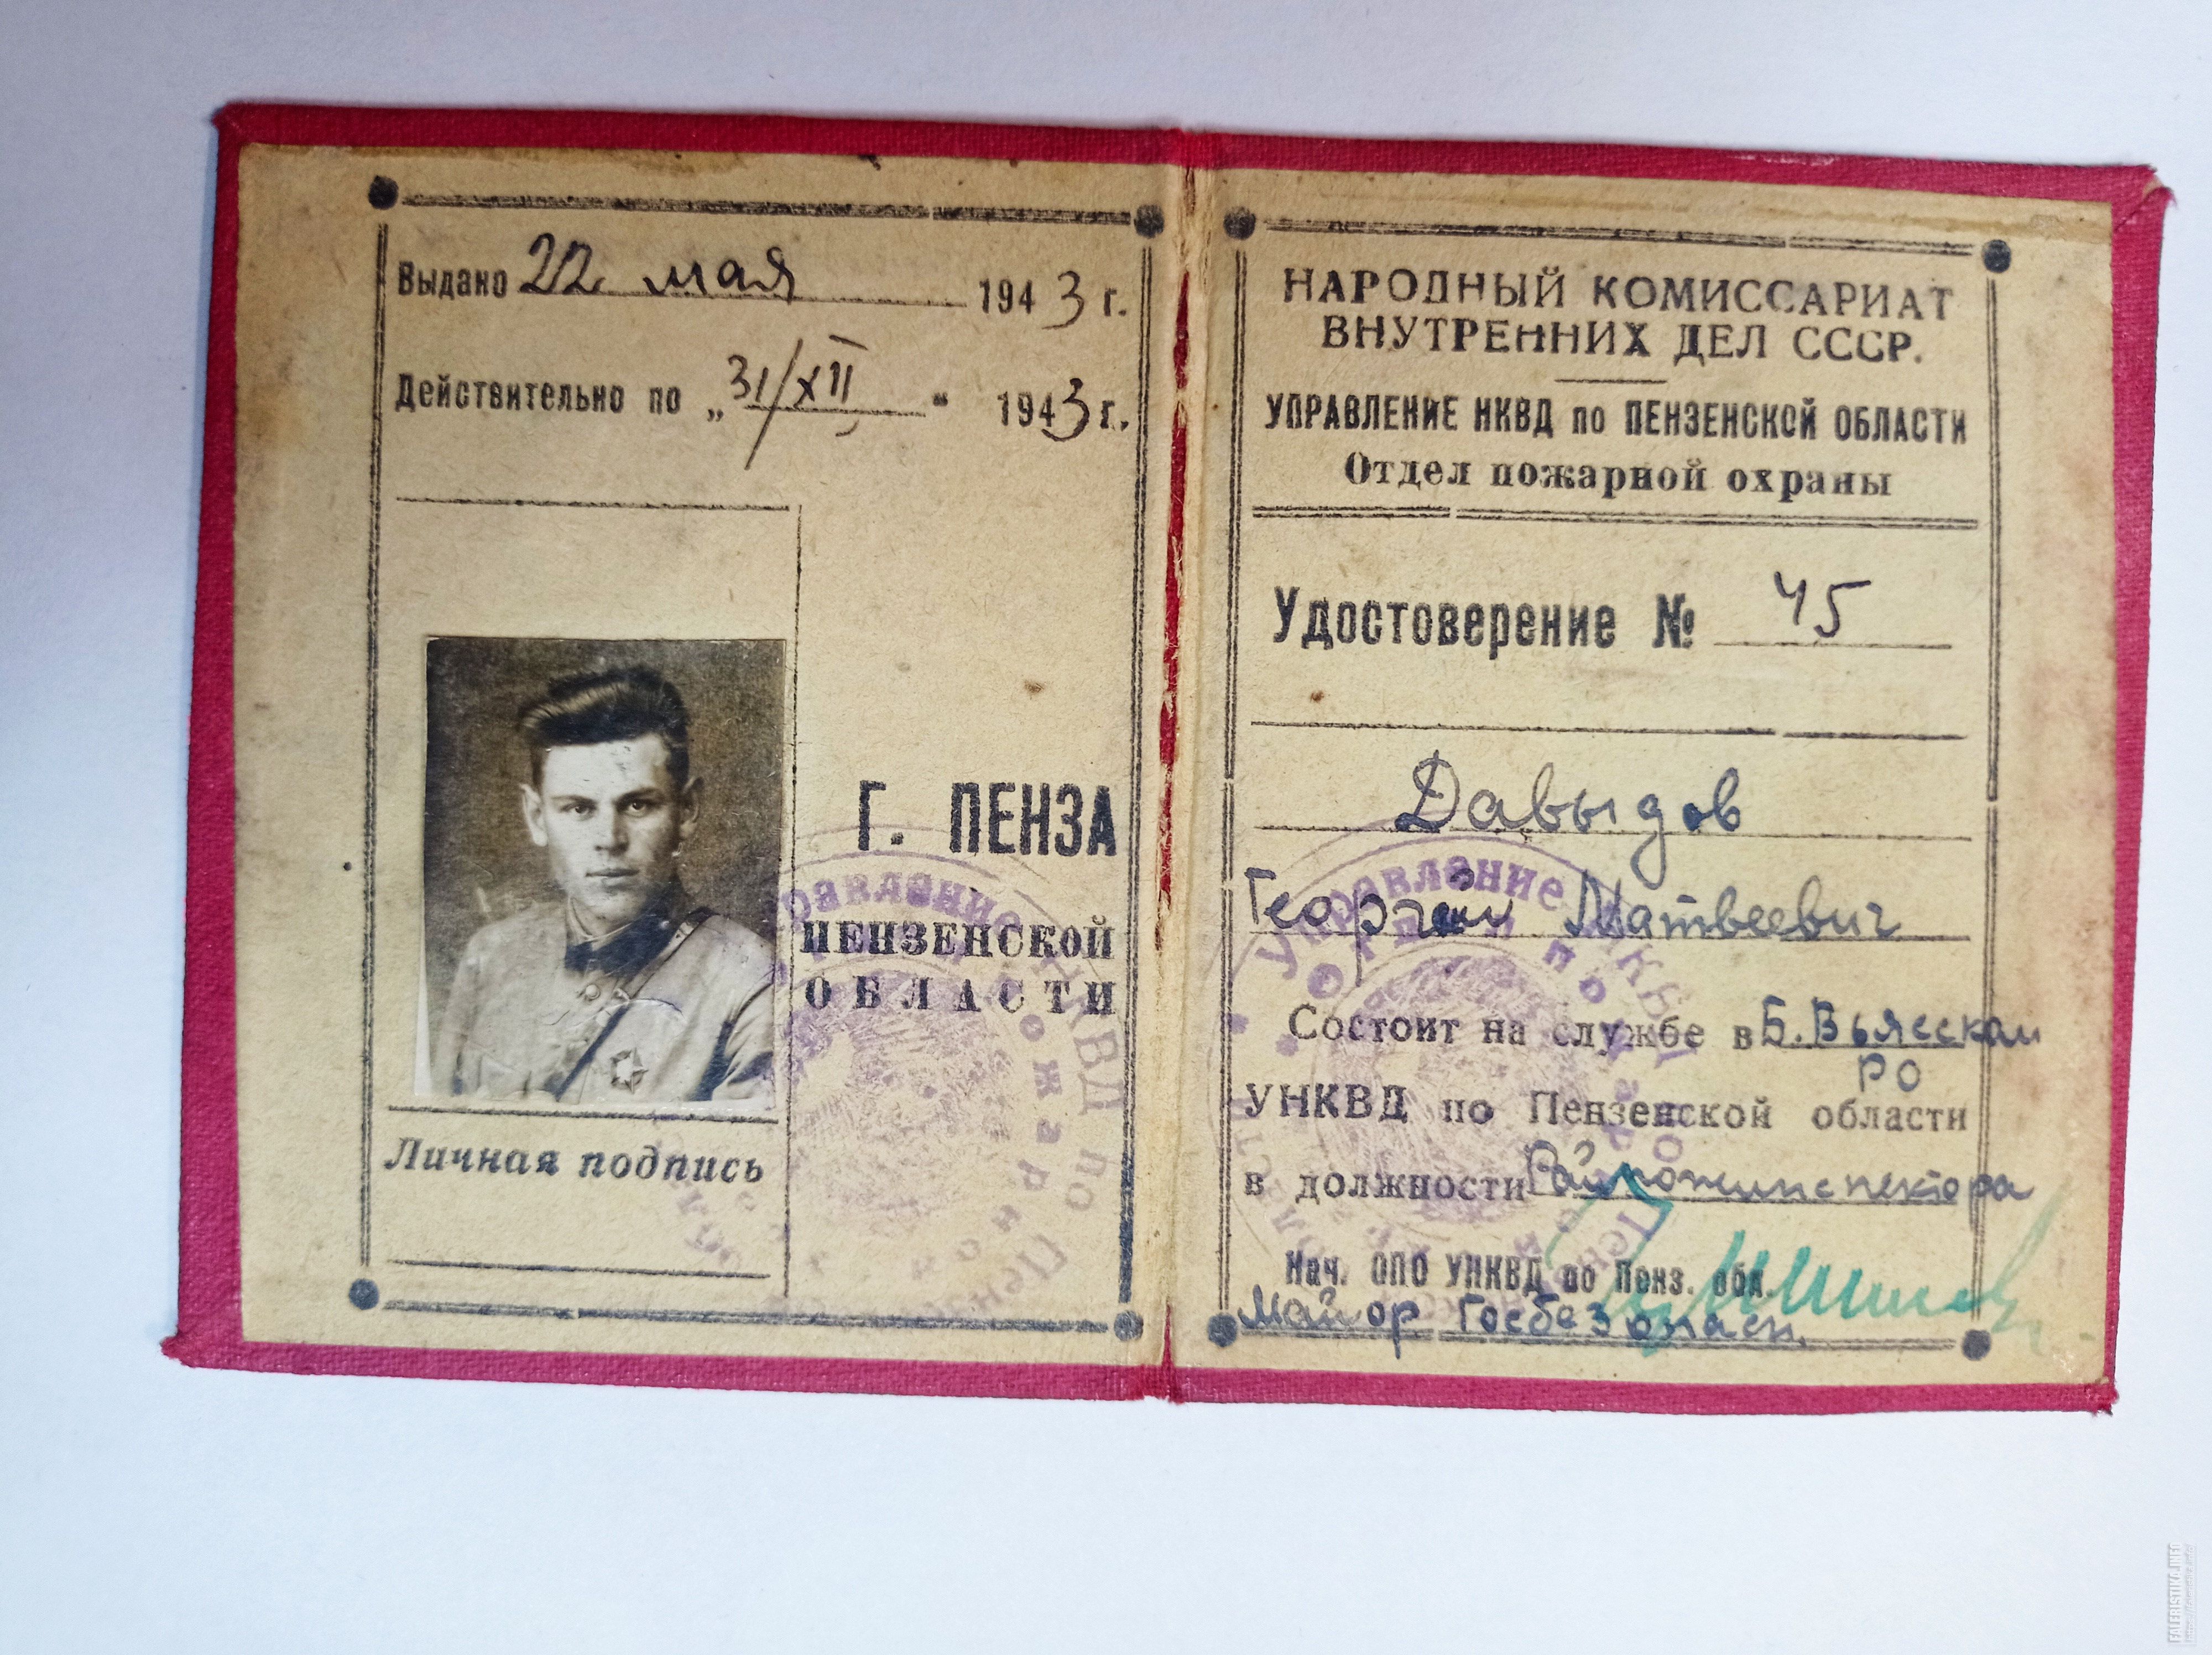 Выдано 22 мая 1943 г.
Действительно по „31/XII“ 1943 г.
Г. ПЕНЗА
ПЕНЗЕНСКОЙ
ОБЛАСТИ
Личная подпись
НАРОДНЫЙ КОМИССАРИАТ
ВНУТРЕННИХ ДЕЛ СССР.
УПРАВЛЕНИЕ НКВД по ПЕНЗЕНСКОЙ ОБЛАСТИ
Отдел пожарной охраны
Удостоверение № 45
Давыдов
Георгий Матвеевич
Состоит на службе в Б. Вьясском
РО
УНКВД по Пензенской области
в должности Райпожинспектора
Нач. ОПО УНКВД по Пенз. обл.
Майор Госбезопасн.
Управление НКВД по
FALERISTIKA.INFO